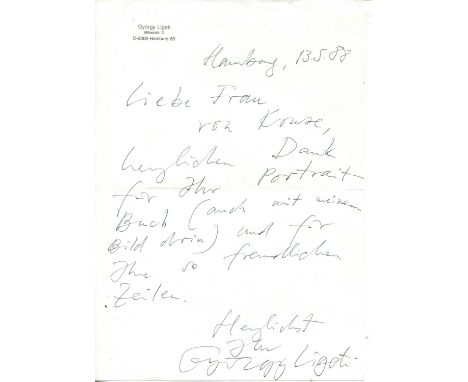 György Ligeti
Mövenstr. 3
D-2000 Hamburg 60
Hamburg, 13.5.88
Liebe Frau
von Kruse,
herzlichen Dank
für Ihr Portrait-
Buch (auch mit meinem
Bild drin) und für
Ihre so freundlichen
Zeilen.
Herzlichst
Ihr
György Ligeti